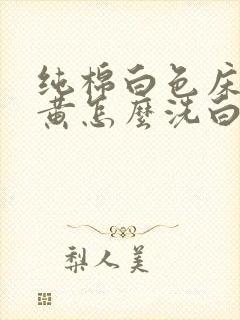 纯棉白色床
黄怎麽洗白
梨人美